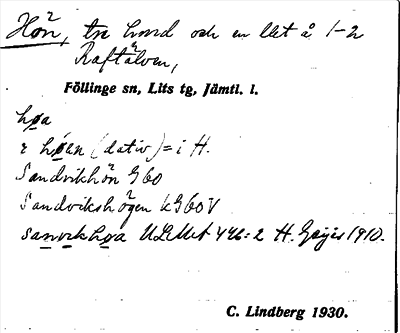 Hön, tre hmd och en llet å 1-2
Raftälven,
Föllinge sn, Lits tg, Jämtl. l.
høa
i høan (dativ) = i H.
Sandvikhön G60
Sandvikshögen kG60V
sanvikhøa ULMA 446:2 H. Geijer 1910.
C. Lindberg 1930.